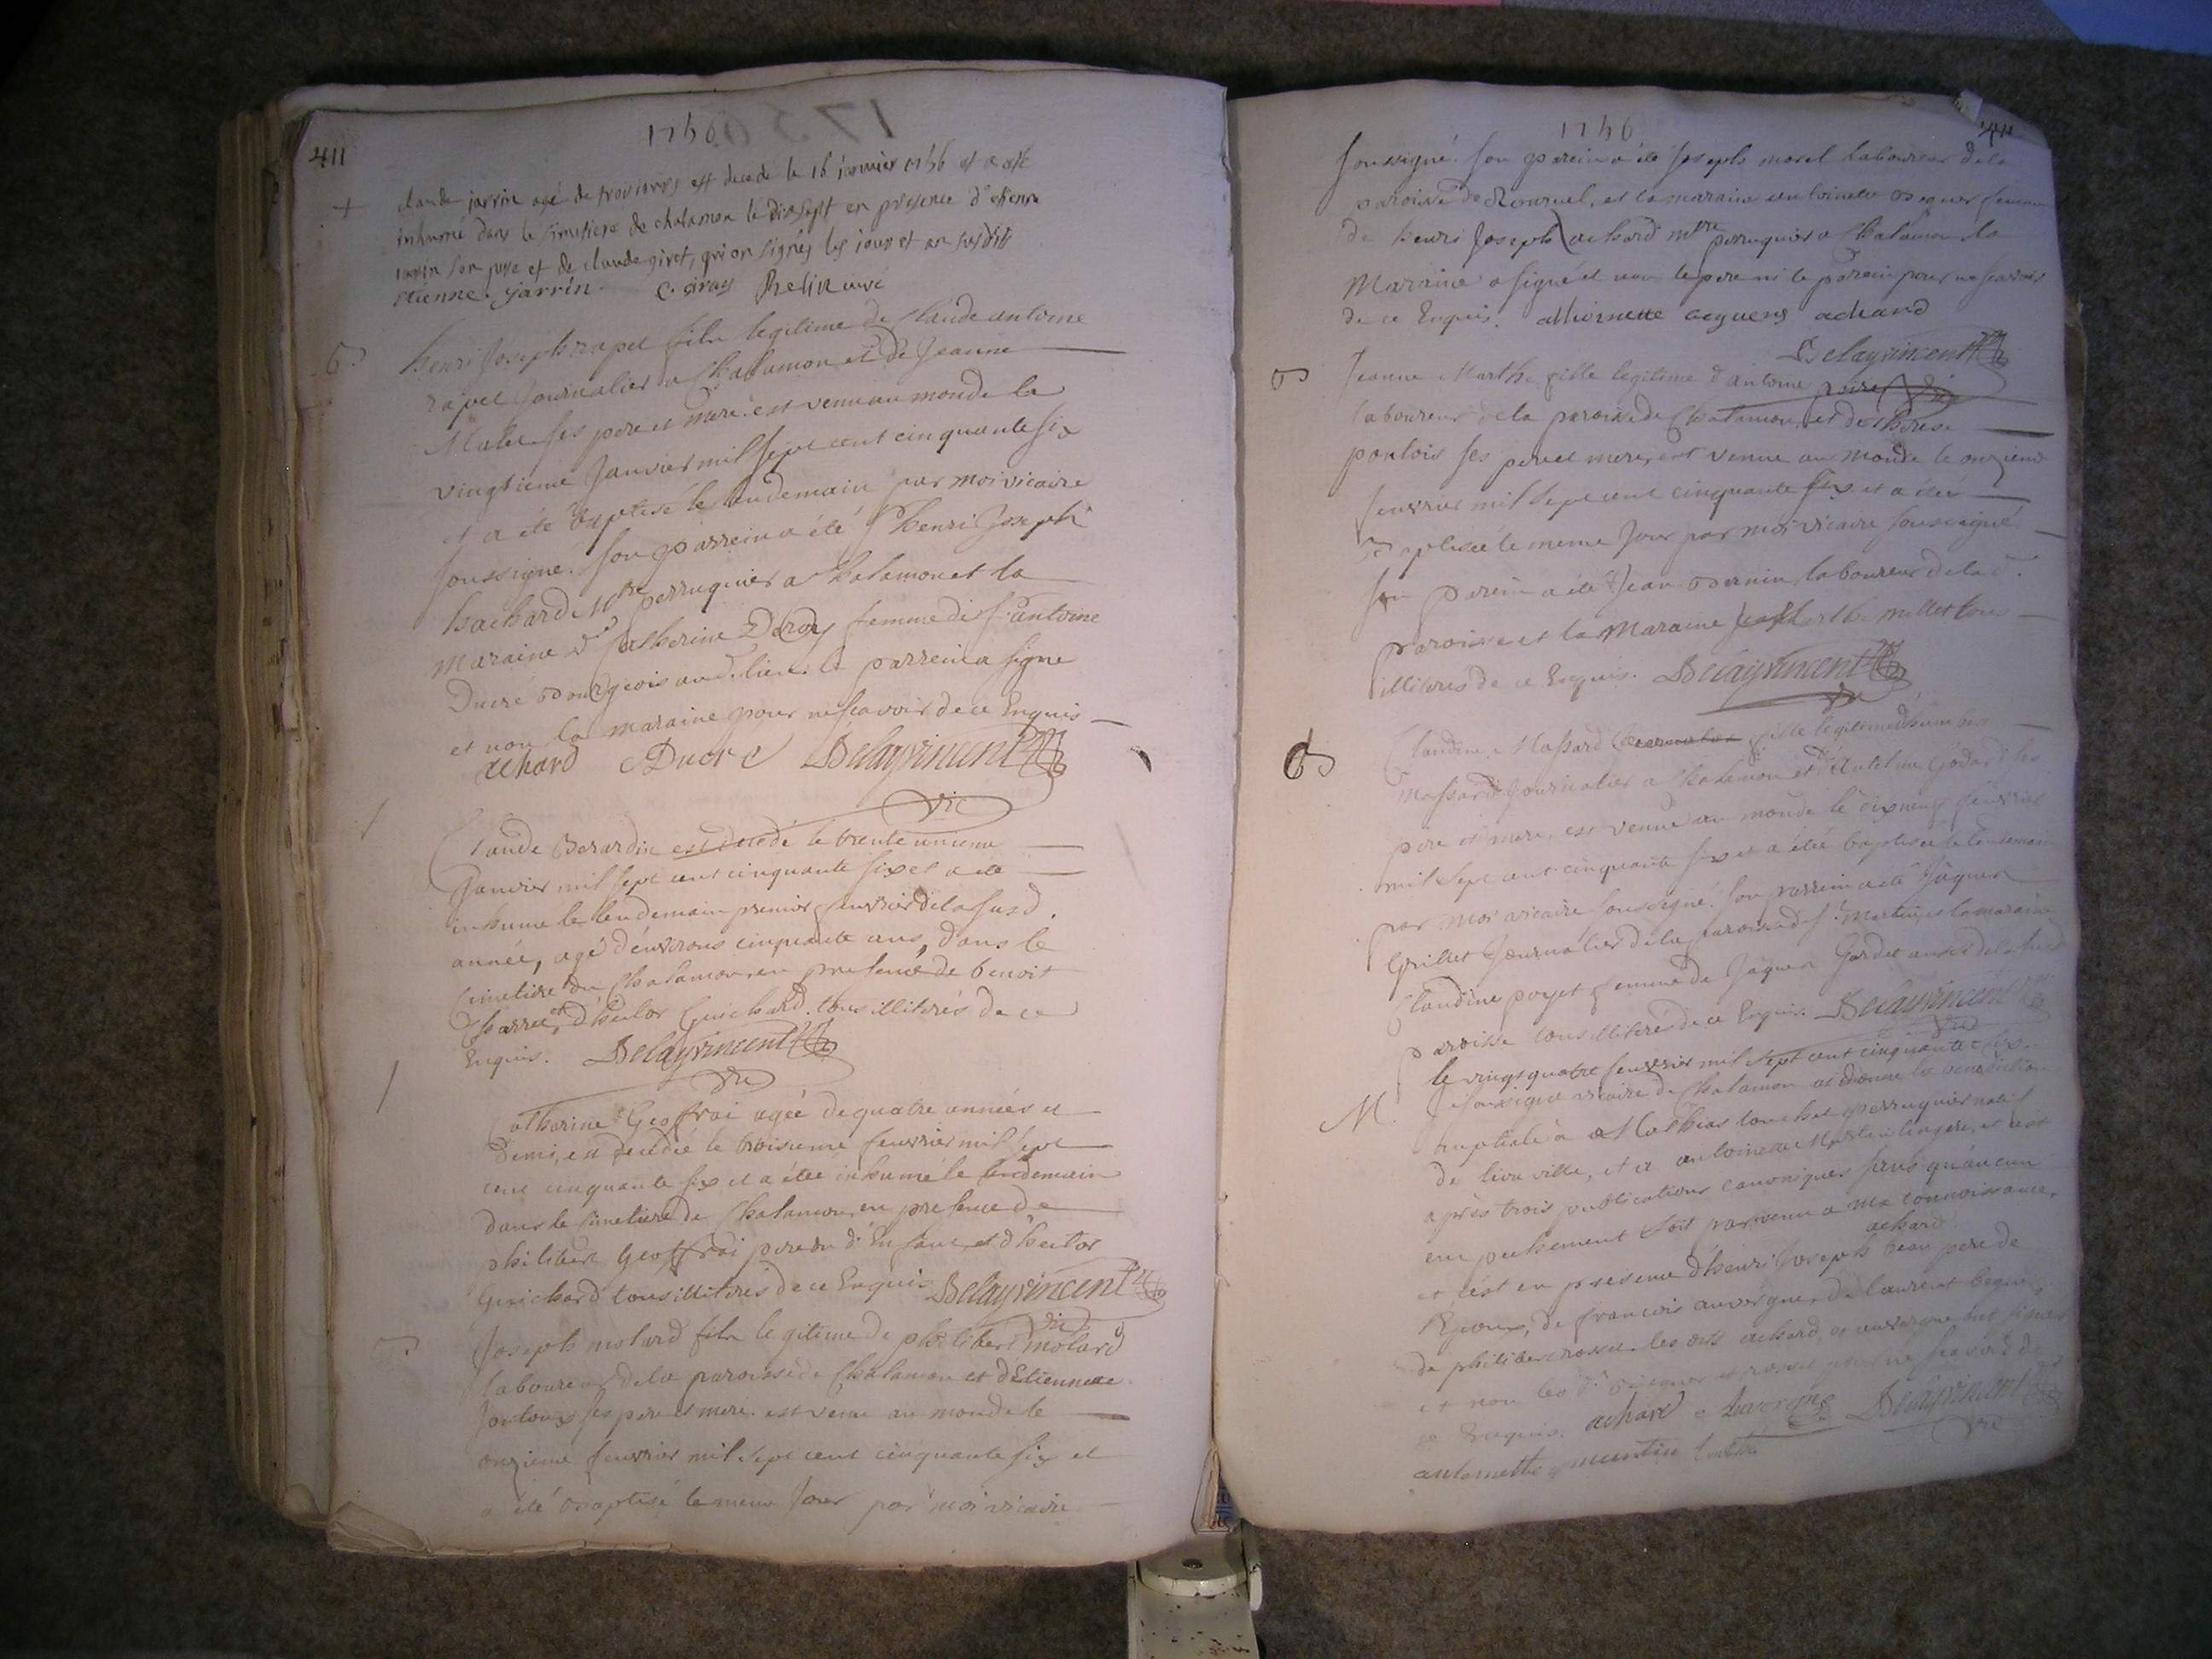 411
1756
+
claude jarrin agé de trois ans est decede le 16 janvier 1756 et a eté
inhumé dans le simetiere de chalamon le dixsept en presence d'etienne
jarrin son pere et de claude giret, qui on signés les jour et an susdits
etienne jarrin
henri Joseph rapet fils legitime de Claude antoine
rapet Journalier a Chalamon et de Jeanne
ses pere et mere est venu au monde le
vingtieme Janvier mil sept cent cinquante six
et a été Baptisé le lendemain par moi vicaire
soussigné. son parrein a été Sr henri Joseph
hachard Mtre perruquier a Chalamon et la
maraine de Catherine femme de Sr antoine
Ducré Bourgeois aud. lieu. le parrein a signé
et non la maraine pour ne scavoir de ce Enquis
achard Ducré Delayvincent
vic
Claude Berardin est decedé le trente unieme
Janvier mil sept cent cinquante six et a été
inhumé le lendemain premier feuvrier de la susd.
année, agé d'environs cinquante ans, dans le
Cimetiere du Chalamon en presence de benoit
et d'hector Guichard tous illiterés de ce
Enquis. Delayvincent
vic
Catherine Geoffrai agée de quatre années et
demi, est decedée le troisieme feuvrier mil sept
cent cinquante six et a étée inhumé le lendemain
dans le Cimetiere de Chalamon en presence de
philibert Geoffrai pere du d. Enfant et d'hector
Guichard tous illiterés de ce Enquis Delayvincent
vic
Joseph molard fils legitime de philibert molard
laboureur de la paroisse de Chalamon et d'Etiennette
ses pere et mere. est venu au monde le
onzieme feuvrier mil sept cent cinquante six et
a été Baptisé le meme Jour par moi vicaire
1756
411
soussigné. son parein a été Joseph morel laboureur de la
paroisse de et la maraine antoinette Beguer femme
de henri Joseph achard mtre perruquier a Chalamon la
Maraine a signé et non le pere ni le parein pour ne scavoir
de ce Enquis. achard
Delayvincent
Jeanne Marthe fille legitime d'antoine poire
laboureur de la paroisse de Chalamon et de therese
ponlois ses pere et mere, est venue au monde le onzieme
feuvrier mil sept cent cinquante six et a étée
Baptisée le meme Jour par moi vicaire soussigné
son parein a été Jean Bernin laboureur de la d.
paroisse et la Maraine millet tous
illiterés de ce Enquis. Delayvincent
vic
Claudine Massard fille legitime
Massard Journalier a Chalamon et d'Antelme Godard ses
pere et mere, est venue au monde le dixneuf feuvrier
mil sept cent cinquante six et a étée baptisée le lendemain
par moi vicaire soussigné. son parrein a été Jâques
Grillet Journalier de la paroisse de St Martin, et la maraine
Claudine poyet femme de Jaques Gardet aussi de la susd.
paroisse tous illiterés de ce Enquis. Delayvincent
vic
M.
le vingt quatre feuvrier mil sept cent cinquante six
Je soussigné vicaire de Chalamon ai donné la benediction
nuptiale a Mathias perruquier natif
de ville, et a antoinette Martin lingere, et c'est
après trois publications canoniques sans qu'aucun
empechement soit parvenu a ma connoissance,
et c'est en presence d'henri Joseph achard beau pere de
l'Epoux, de francois auvergne, de laurent beguer,
de philibert rosset. les dits achard, et auvergne ont signé
et non les d. et rosset pour ne scavoir de
ce Enquis. achard Delayvincent
vic